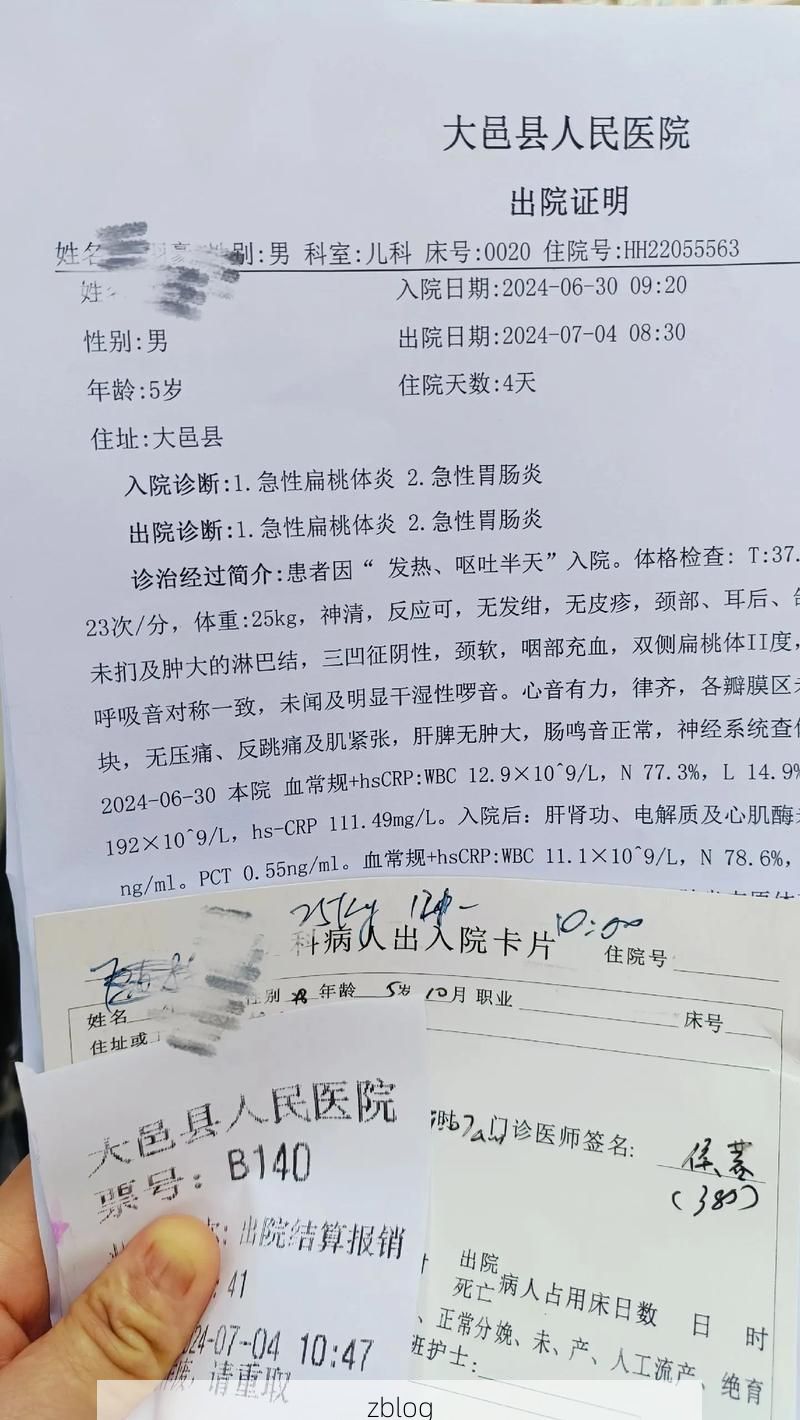 大邑县人民医院
出院证明
姓名 性别:男 科室:儿科 床号:0020 住院号:HH22055563
入院日期:2024-06-30 09:20
性别:男
出院日期:2024-07-04 08:30
年龄:5岁
住院天数:4天
住址:大邑县
入院诊断:1.急性扁桃体炎 2.急性胃肠炎
出院诊断:1.急性扁桃体炎 2.急性胃肠炎
诊治经过简介:患者因“ 发热、呕吐半天”入院。体格检查: T:37.
23次/分, 体重:25kg, 神清, 反应可, 无发绀, 无皮疹, 颈部、耳后、
未扪及肿大的淋巴结, 三凹征阴性, 颈软, 咽部充血, 双侧扁桃体II度,
呼吸音对称一致, 未闻及明显干湿性啰音。心音有力, 律齐, 各瓣膜区
块, 无压痛、反跳痛及肌紧张, 肝脾无肿大, 肠鸣音正常, 神经系统查
2024-06-30 本院 血常规+hsCRP:WBC 12.9×10^9/L, N 77.3%, L 14.9%
192×10^9/L, hs-CRP 111.49mg/L。入院后: 肝肾功、电解质及心肌酶
ng/ml。PCT 0.55ng/ml。血常规+hsCRP:WBC 11.1×10^9/L, N 78.6%,
25kg 10:00
科病人出入院卡片 住院号
姓名 性别 男 年龄 5岁10月 职业 床号
住址或
门诊医师签名:
(380)
大邑县人民医院
票号: B140
出院结算报销
: 41
24-07-04 10:47
请重取
出院
死亡
病人占用床日数 日 时
、正常分娩、未、产、人工流产、绝育
班护士:
zblog